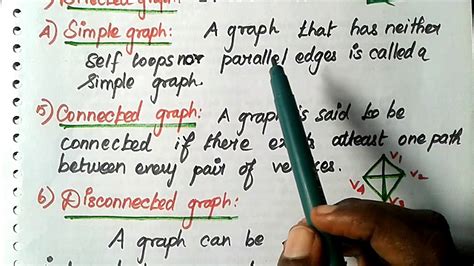 Directed graph:
4) Simple graph: A graph that has neither
self loops nor parallel edges is called a
simple graph.
5) Connected graph: A graph is said to be
connected if there exists atleast one path
between every pair of vertices.
V1
V4 V2
6) Disconnected graph:
A graph can be